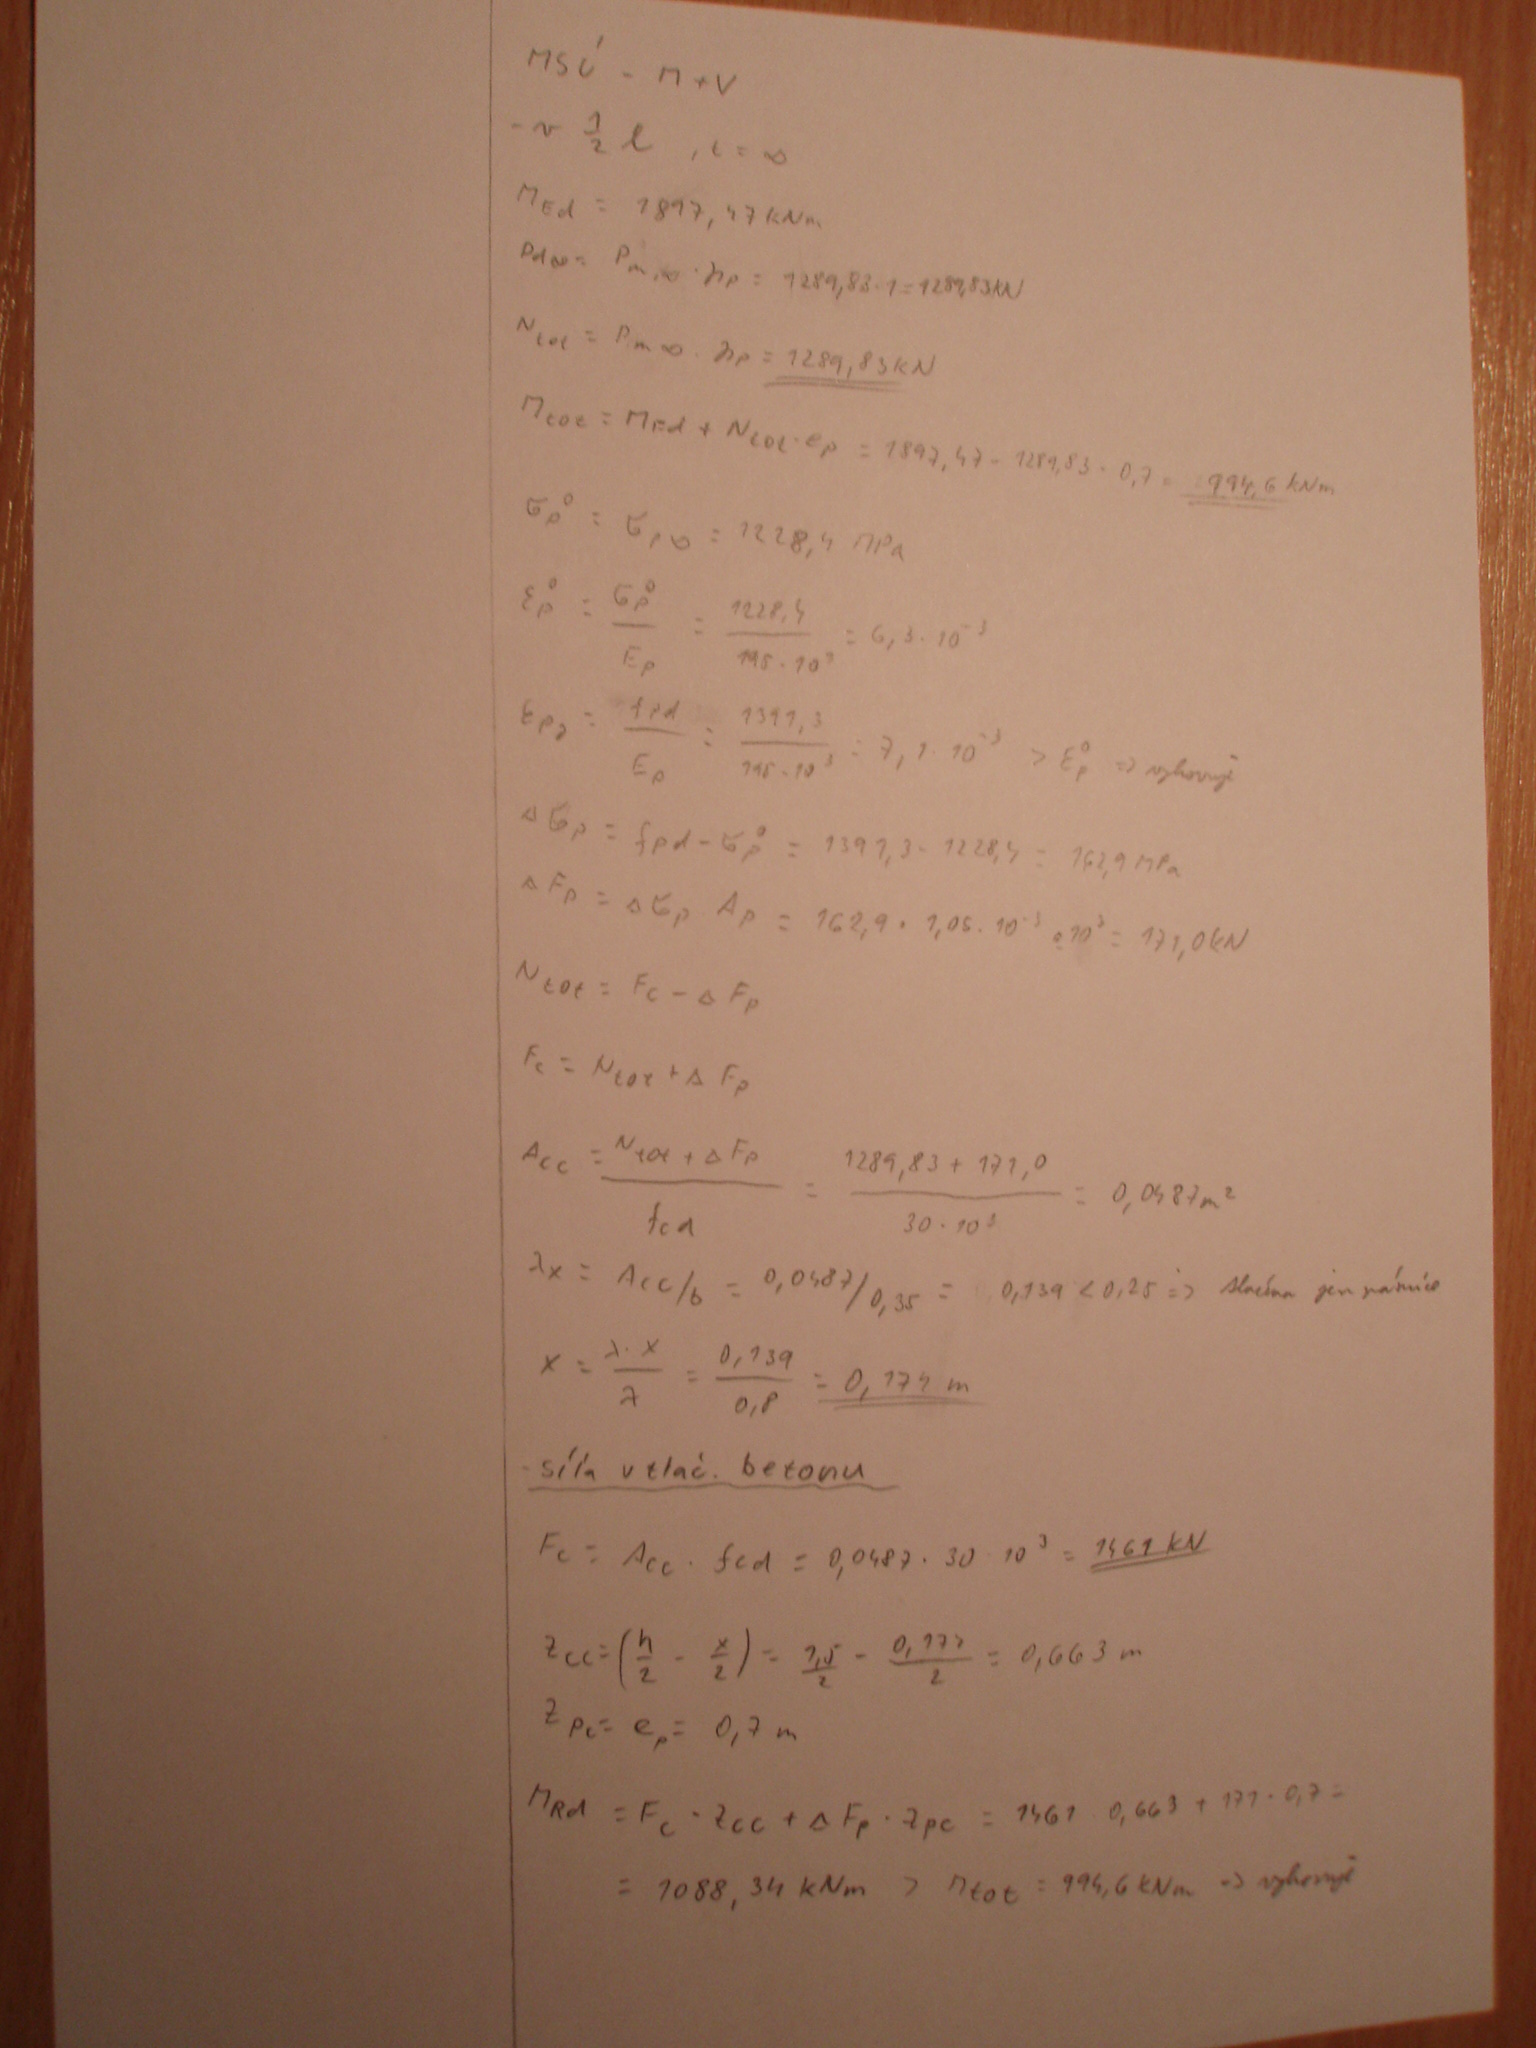 MSÚ - M+V
- v 1/2 l , t = ∞
M_Ed = 1897,47 kNm
P_d∞ = P_m,∞ · γ_P = 1289,83 · 1 = 1289,83 kN
N_tot = P_m∞ · γ_P = 1289,83 kN
M_tot = M_Ed + N_tot · e_p = 1897,47 - 1289,83 · 0,7 = 994,6 kNm
σ_p^0 = σ_p∞ = 1228,4 MPa
ε_p^0 = σ_p^0 / E_p = 1228,4 / 195·10^3 = 6,3·10^-3
ε_py = f_pd / E_p = 1391,3 / 195·10^3 = 7,1·10^-3 > ε_p^0 => vyhovuje
Δσ_p = f_pd - σ_p^0 = 1391,3 - 1228,4 = 162,9 MPa
ΔF_p = Δσ_p · A_p = 162,9 · 1,05·10^-3 · 10^3 = 171,0 kN
N_tot = F_c - ΔF_p
F_c = N_tot + ΔF_p
A_cc = N_tot + ΔF_p / f_cd = 1289,83 + 171,0 / 30·10^3 = 0,0487 m²
λx = A_cc/b = 0,0487/0,35 = 0,139 < 0,25 => tlačena jen
x = λ·x / λ = 0,139 / 0,8 = 0,174 m
- síla v tlač. betonu
F_c = A_cc · f_cd = 0,0487 · 30 · 10^3 = 1461 kN
z_cc = (h/2 - x/2) = 1,5/2 - 0,174/2 = 0,663 m
z_pc = e_p = 0,7 m
M_Rd = F_c · z_cc + ΔF_p · z_pc = 1461 · 0,663 + 171 · 0,7 =
= 1088,34 kNm > M_tot = 994,6 kNm => vyhovuje